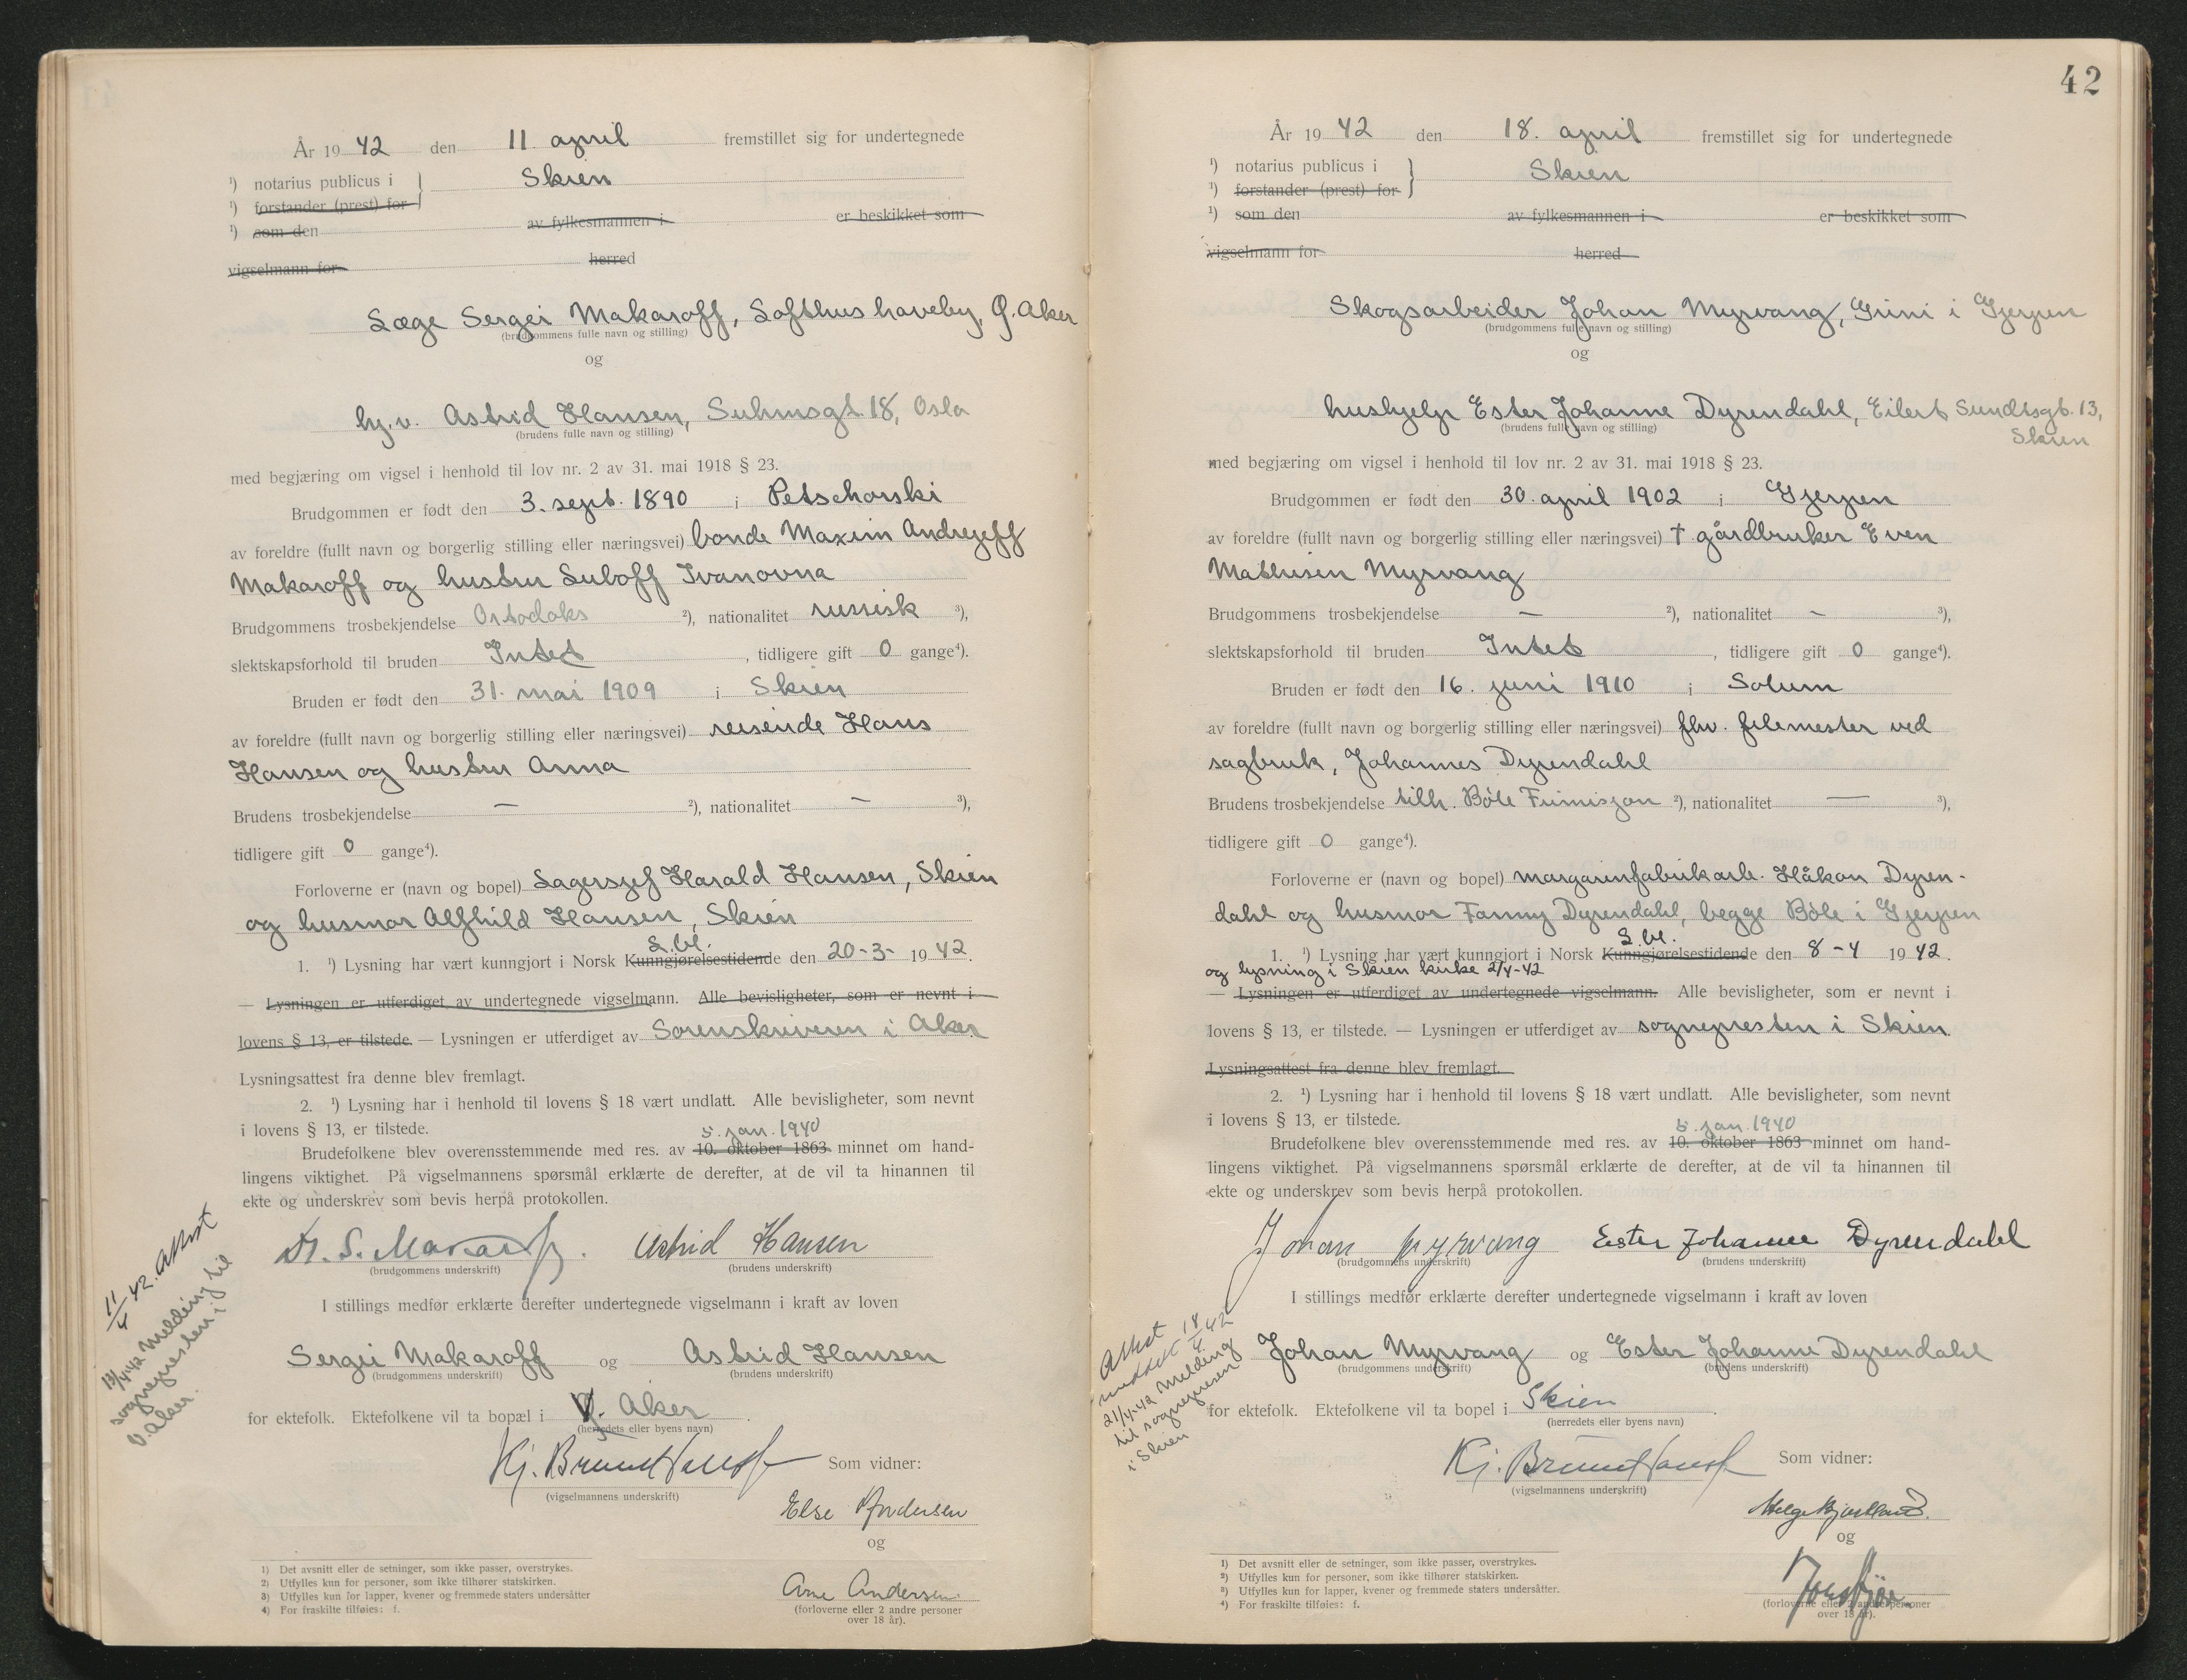 År 19 42 den 11. april fremstillet sig for undertegnede
¹) notarius publicus i } Skien
¹) forstander (prest) for
¹) som den av fylkesmannen i er beskikket som
vigselmann for herred
Læge Sergei Makaroff, Lofthus haveby, Ø. Aker
(brudgommens fulle navn og stilling)
og
hj.v. Astrid Hansen, Suhmsgt. 18, Oslo
(brudens fulle navn og stilling)
med begjæring om vigsel i henhold til lov nr. 2 av 31. mai 1918 § 23.
Brudgommen er født den 3. sept. 1890 i Petschorski
av foreldre (fullt navn og borgerlig stilling eller næringsvei) bonde Maxim Andrejeff
Makaroff og hustru Luboff Ivanovna
Brudgommens trosbekjendelse Ortodoks ²), nationalitet russisk ³),
slektskapsforhold til bruden Intet , tidligere gift 0 gange⁴).
Bruden er født den 31. mai 1909 i Skien
av foreldre (fullt navn og borgerlig stilling eller næringsvei) reisende Hans
Hansen og hustru Anna
Brudens trosbekjendelse — ²), nationalitet — ³),
tidligere gift 0 gange⁴).
Forloverne er (navn og bopel) Lagersjef Harald Hansen, Skien
og husmor Alfhild Hansen, Skien
L.bl.
1. ¹) Lysning har vært kunngjort i Norsk Kunngjørelsestidende den 20-3- 19 42.
— Lysningen er utferdiget av undertegnede vigselmann. Alle bevisligheter, som er nevnt i
lovens § 13, er tilstede. — Lysningen er utferdiget av Sorenskriveren i Aker
Lysningsattest fra denne blev fremlagt.
2. ¹) Lysning har i henhold til lovens § 18 vært undlatt. Alle bevisligheter, som nevnt
i lovens § 13, er tilstede.
5. jan. 1940
Brudefolkene blev overensstemmende med res. av 10. oktober 1863 minnet om hand-
lingens viktighet. På vigselmannens spørsmål erklærte de derefter, at de vil ta hinannen til
ekte og underskrev som bevis herpå protokollen.
Dr. S. Makaroff. Astrid Hansen
(brudgommens underskrift) (brudens underskrift)
I stillings medfør erklærte derefter undertegnede vigselmann i kraft av loven
Sergei Makaroff og Astrid Hansen
(brudgommens underskrift) (brudens underskrift)
for ektefolk. Ektefolkene vil ta bopæl i V. Aker .
(herredets eller byens navn)
Kj. Som vidner:
(vigselmannens underskrift)
Else Andersen
og
Arne Andersen
(forloverne eller 2 andre personer
over 18 år).
11/4 42. Attest
13/4 42 Melding til
sognepresten i
V. Aker.
1) Det avsnitt eller de setninger, som ikke passer, overstrykes.
2) Utfylles kun for personer, som ikke tilhører statskirken.
3) Utfylles kun for lapper, kvener og fremmede staters undersåtter
4) For fraskilte tilføies: f.
42
År 19 42 den 18. april fremstillet sig for undertegnede
¹) notarius publicus i } Skien
¹) forstander (prest) for
¹) som den av fylkesmannen i er beskikket som
vigselmann for herred
Skogsarbeider Johan Myrvang, Grini i Gjerpen
(brudgommens fulle navn og stilling)
og
hushjelp Ester Johanne Dyrendahl, Eilert Sundtsgt. 13,
Skien
(brudens fulle navn og stilling)
med begjæring om vigsel i henhold til lov nr. 2 av 31. mai 1918 § 23.
Brudgommen er født den 30. april 1902 i Gjerpen
av foreldre (fullt navn og borgerlig stilling eller næringsvei) † gårdbruker Even
Mathisen Myrvang
Brudgommens trosbekjendelse — ²), nationalitet — ³),
slektskapsforhold til bruden Intet , tidligere gift 0 gange⁴).
Bruden er født den 16. juni 1910 i Solum
av foreldre (fullt navn og borgerlig stilling eller næringsvei) fhv. filemester ved
sagbruk, Johannes Dyrendahl
Brudens trosbekjendelse tilh. Bøle Frimisjon ²), nationalitet — ³),
tidligere gift 0 gange⁴).
Forloverne er (navn og bopel) margarinfabrikarb. Håkon Dyren-
dahl og husmor Fanny Dyrendahl, begge Bøle i Gjerpen
L.bl.
1. ¹) Lysning har vært kunngjort i Norsk Kunngjørelsestidende den 8-4 19 42.
og lysning i Skien kirke 2/4-42
— Lysningen er utferdiget av undertegnede vigselmann. Alle bevisligheter, som er nevnt i
lovens § 13, er tilstede. — Lysningen er utferdiget av sognepresten i Skien
Lysningsattest fra denne blev fremlagt.
2. ¹) Lysning har i henhold til lovens § 18 vært undlatt. Alle bevisligheter, som nevnt
i lovens § 13, er tilstede.
5. jan. 1940
Brudefolkene blev overensstemmende med res. av 10. oktober 1863 minnet om hand-
lingens viktighet. På vigselmannens spørsmål erklærte de derefter, at de vil ta hinannen til
ekte og underskrev som bevis herpå protokollen.
Johan Myrvang Ester Johanne Dyrendahl
(brudgommens underskrift) (brudens underskrift)
I stillings medfør erklærte derefter undertegnede vigselmann i kraft av loven
Johan Myrvang og Ester Johanne Dyrendahl
(brudgommens underskrift) (brudens underskrift)
for ektefolk. Ektefolkene vil ta bopel i Skien .
(herredets eller byens navn)
Kj. Som vidner:
(vigselmannens underskrift)
Helge
og
(forloverne eller 2 andre personer
over 18 år).
Attest
18/4 42
21/4-42 Melding
til sognepresen
i Skien
1) Det avsnitt eller de setninger, som ikke passer, overstrykes.
2) Utfylles kun for personer, som ikke tilhører statskirken.
3) Utfylles kun for lapper, kvener og fremmede staters undersåtter.
4) For fraskilte tilføies: f.